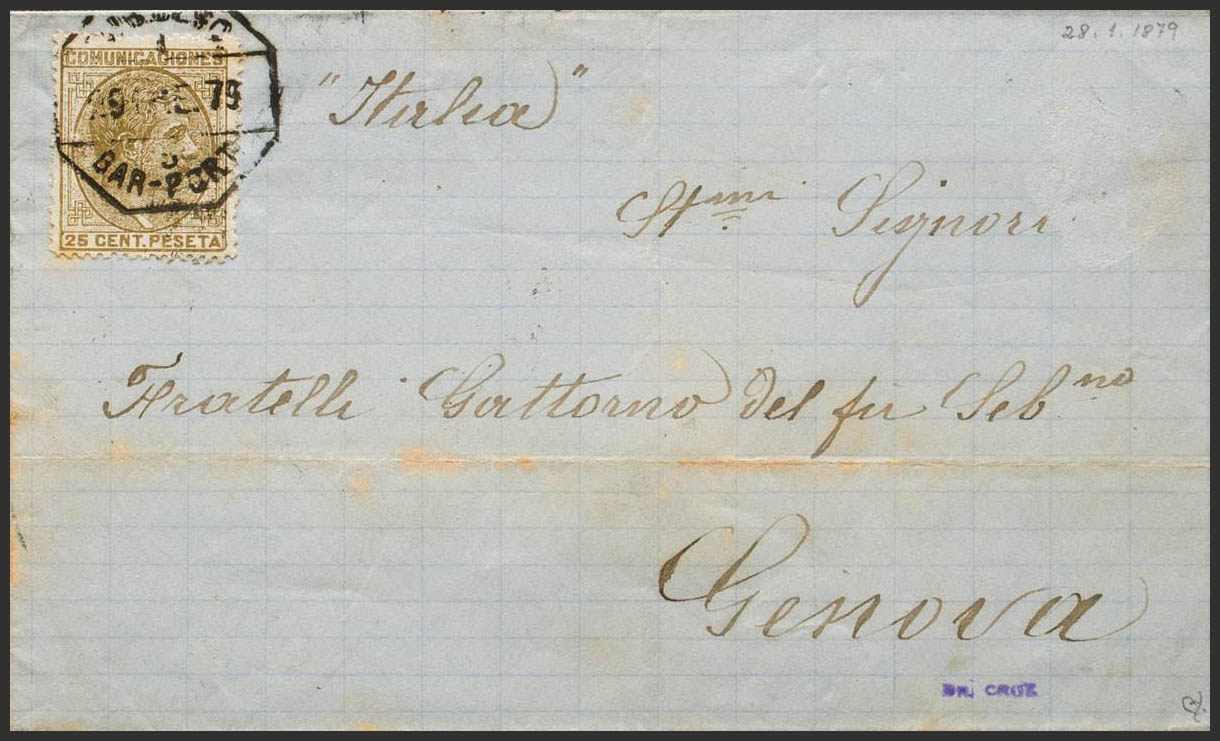 28.1.1879
COMUNICACIONES
79
BAR-PORT
25 CENT. PESETA
"Italia"
Stmi Signori
Fratelli Gattorno del fu Sebno
Genova
DR. CRUZ